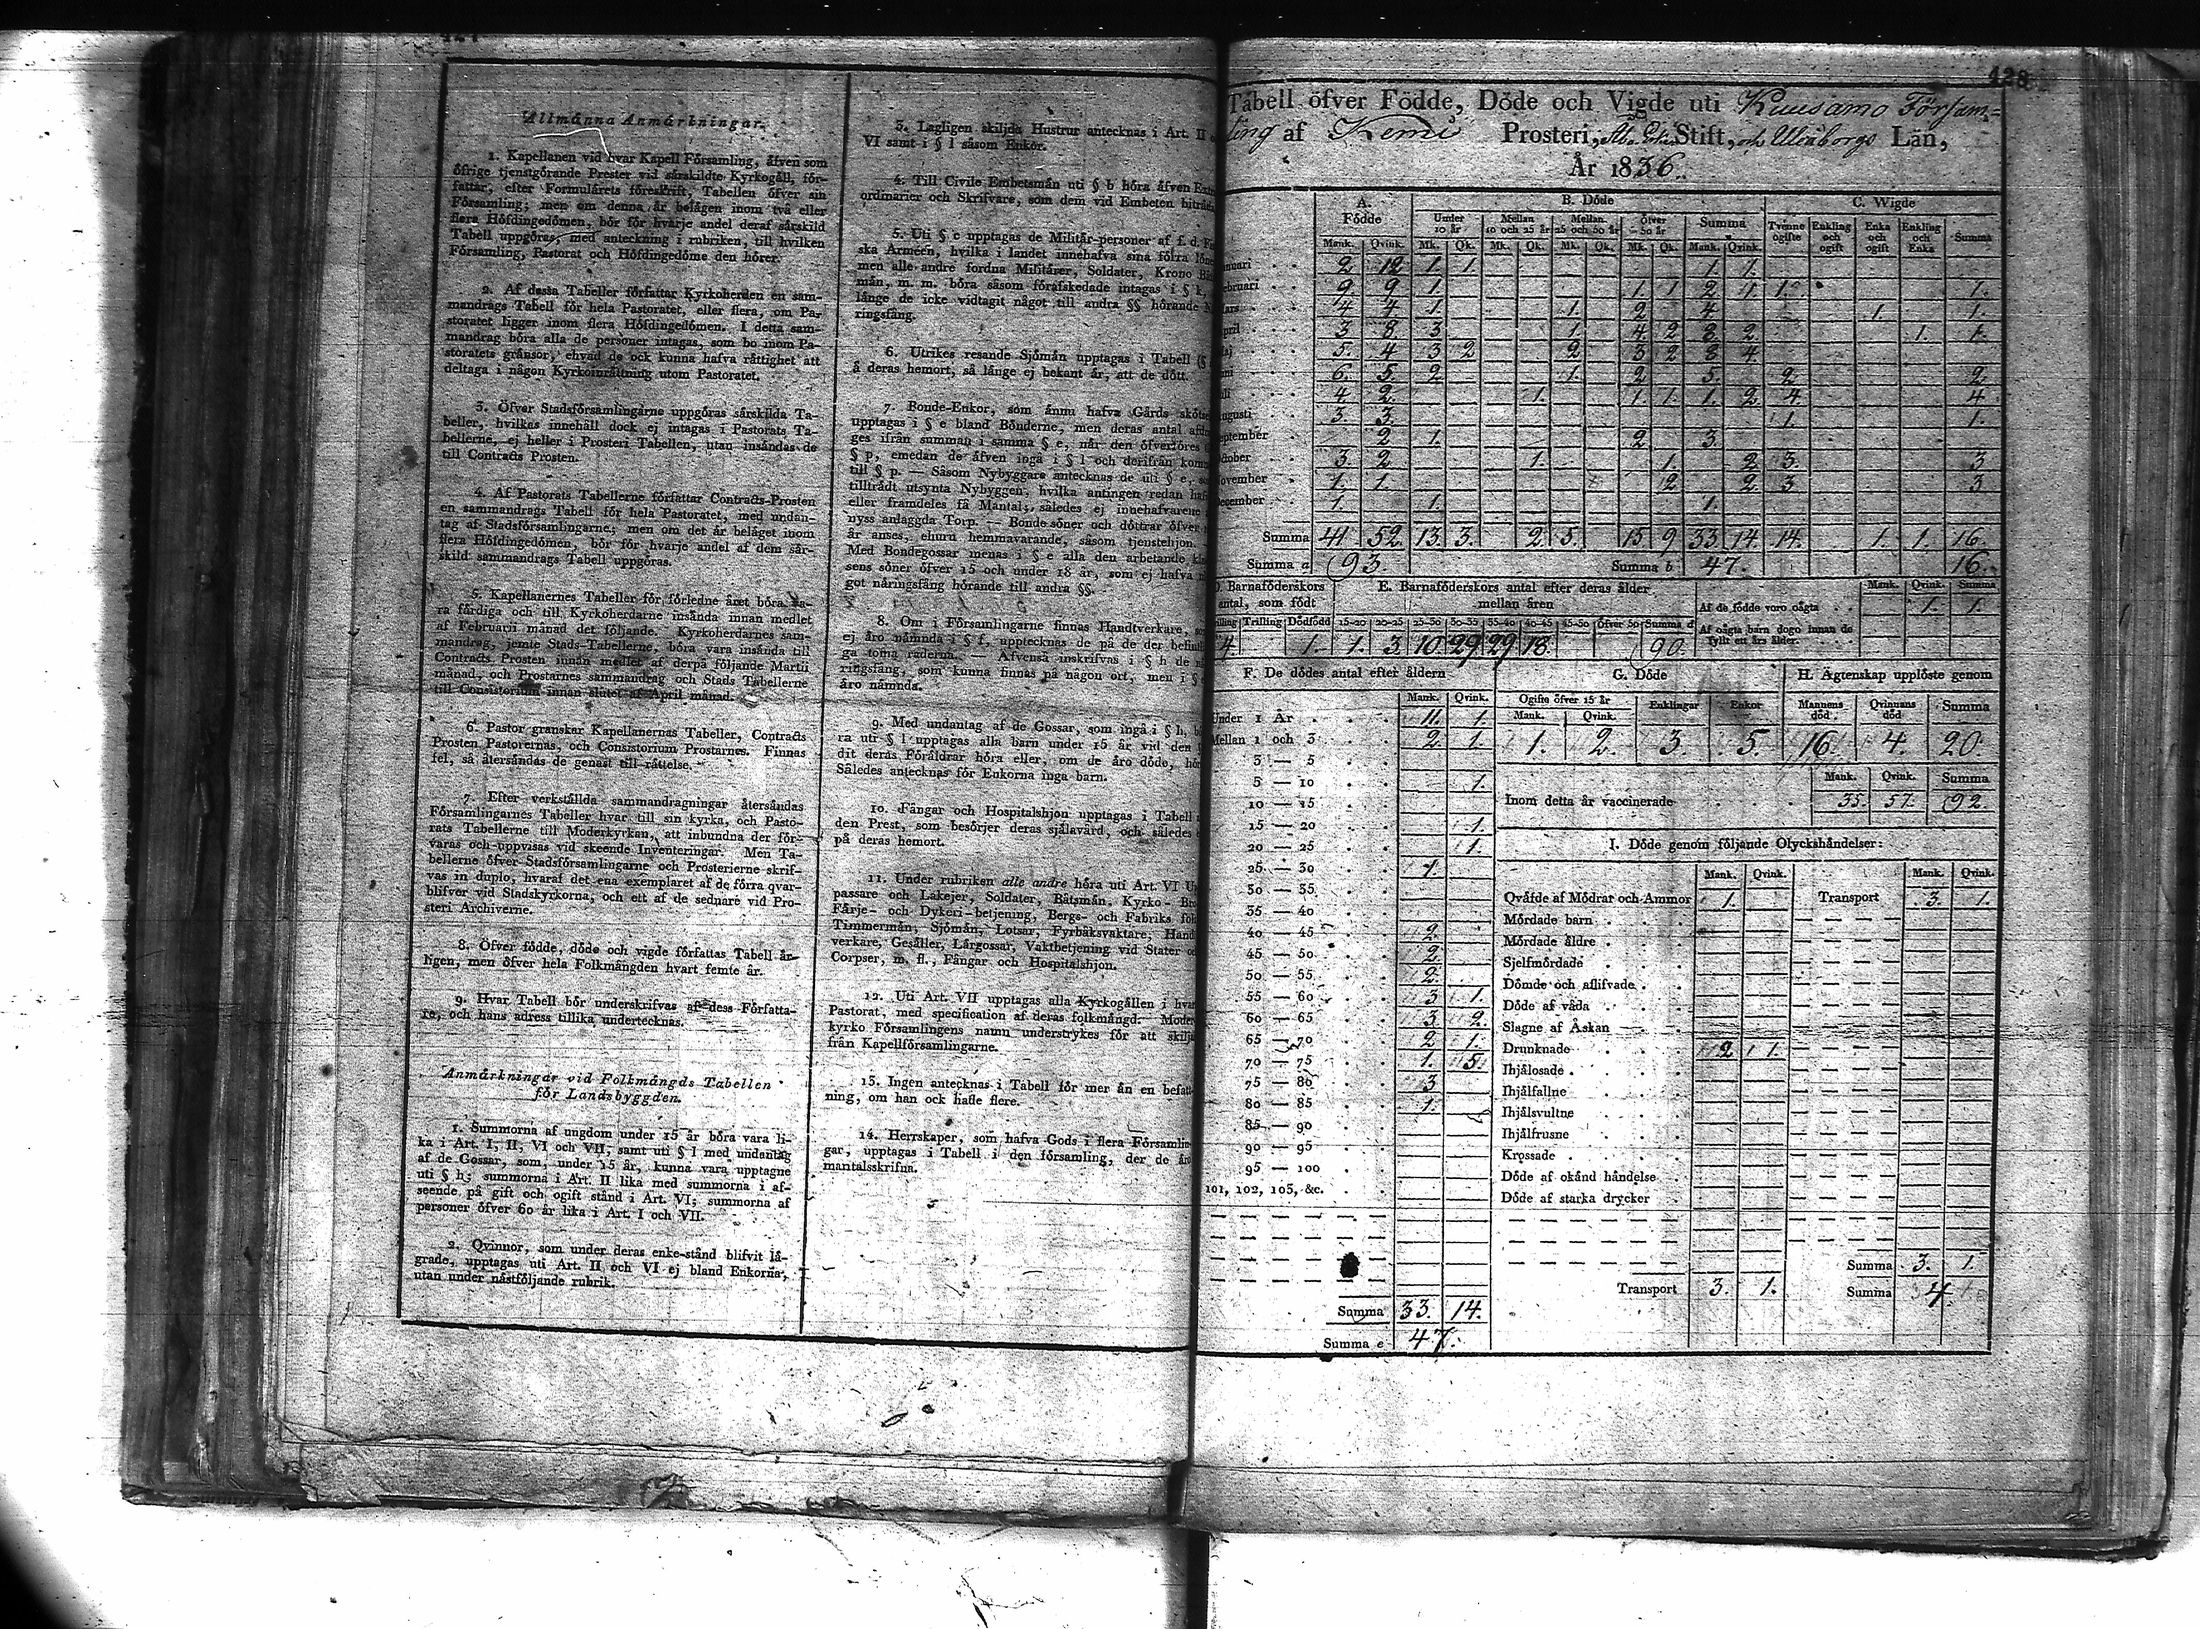 Allmänna Anmärkningar.
1. Kapellanen vid hvar Kapell Församling, äfven som
öfrige tjenstgörande Prester vid särskildte Kyrkogäll, för-
fattar, efter Formulärets föreskrift, Tabellen öfver sin
Församling; men om denna är belägen inom två eller
flera Höfdingedömen, bör för hvarje andel deraf särskild
Tabell uppgöras, med anteckning i rubriken, till hvilken
Församling, Pastorat och Höfdingedöme den hörer.
2. Af dessa Tabeller författar Kyrkoherden en sam-
mandrags Tabell för hela Pastoratet, eller flera, om Pa-
storatet ligger inom flera Höfdingedömen. I detta sam-
mandrag böra alla de personer intagas, som bo inom Pa-
storatets gränsor, ehvad de ock kunna hafva rättighet att
deltaga i någon Kyrkoinrättning utom Pastoratet.
3. Öfver Stadsförsamlingarne uppgöras särskilda Ta-
beller, hvilkas innehåll dock ej intagas i Pastorats Ta-
bellerne, ej heller i Prosteri Tabellen, utan insändas de
till Contracts Prosten.
4. Af Pastorats Tabellerne författar Contracts-Prosten
en sammandrags Tabell för hela Pastoratet, med undan-
tag af Stadsförsamlingarne; men om det är beläget inom
flera Höfdingedömen, bör för hvarje andel af dem sär-
skild sammandrags Tabell uppgöras.
5. Kapellanernes Tabeller för förledne året böra va-
ra färdiga och till Kyrkoherdarne insända innan medlet
af Februarii månad det följande. Kyrkoherdarnes sam-
mandrag, jemte Stads-Tabellerne, böra vara insända till
Contracts Prosten innan medlet af derpå följande Martii
månad, och Prostarnes sammandrag och Stads Tabellerne
till Consistorium innan slutet af April månad.
6. Pastor granskar Kapellanernes Tabeller, Contracts
Prosten Pastorernas, och Consistorium Prostarnes. Finnas
fel, så återsändas de genast till rättelse.
7. Efter verkställda sammandragningar återsändas
Församlingarnes Tabeller hvar till sin kyrka, och Pasto-
rats Tabellerne till Moderkyrkan, att inbundna der för-
varas och uppvisas vid skeende Inventeringar. Men Ta-
bellerne öfver Stadsförsamlingarne och Prosterierne skrif-
vas in duplo, hvaraf det ena exemplaret af de förra qvar-
blifver vid Stadskyrkorna, och ett af de sednare vid Pro-
steri Archiverne.
8. Öfver födde, döde och vigde författas Tabell år-
ligen, men öfver hela Folkmängden hvart femte år.
9. Hvar Tabell bör underskrifvas af dess Författa-
re, och hans adress tillika undertecknas.
Anmärkningar vid Folkmängds Tabellen
för Landsbyggden.
1. Summorna af ungdom under 15 år böra vara li-
ka i Art. I, II, VI och VII, samt uti § l med undantag
af de Gossar, som, under 15 år, kunna vara upptagne
uti § h; summorna i Art. II lika med summorna i af-
seende på gift och ogift stånd i Art. VI; summorna af
personer öfver 60 år lika i Art. I och VII.
2. Qvinnor, som under deras enke-stånd blifvit lä-
grade, upptagas uti Art. II och VI ej bland Enkorna,
utan under nästföljande rubrik.
3. Lagligen skiljda Hustrur antecknas i Art. II
VI samt i § l såsom Enkor.
4. Till Civile Embetsmän uti § b höra äfven
ordinarier och Skrifvare, som dem vid Embeten biträda
5. Uti § c upptagas de Militär-personer af f. d.
ska Arméen, hvilka i landet innehafva sina förra
men alle andre fordna Militärer, Soldater, Krono
män, m. m. böra såsom förafskedade intagas i § k,
länge de icke vidtagit något till andra §§ hörande
ringsfång.
6. Utrikes resande Sjömän upptagas i Tabell
å deras hemort, så länge ej bekant är, att de dött.
7. Bonde-Enkor, som ännu hafva Gårds
upptagas i § e bland Bönderne, men deras antal
ges ifrån summan i samma § e, när den öfverföres
§ p, emedan de äfven ingå i § l och derifrån
till § p. — Såsom Nybyggare antecknas de uti § e,
tillträdt utsynta Nybyggen, hvilka antingen redan
eller framdeles få Mantal, således ej innehafvarene
nyss anlagda Torp. — Bonde söner och döttrar öfver
år anses, ehuru hemmavarande, såsom tjenstehjon.
Med Bondegossar menas i § e alla den arbetande
sens söner öfver 15 och under 18 år, som ej hafva
got näringsfång hörande till andra §§.
8. Om i Församlingarne finnas Handtverkare,
ej äro nämnda i § f, upptecknas de på de der
ga toma raderna. Äfvenså inskrifvas i § h de
ringsfång, som kunna finnas på någon ort, men i §
äro nämnda.
9. Med undantag af de Gossar, som ingå i § h,
ra uti § l upptagas alla barn under 15 år vid den
dit deras Föräldrar höra eller, om de äro döde,
Således antecknas för Enkorna inga barn.
10. Fångar och Hospitalshjon upptagas i Tabell
den Prest, som besörjer deras själavård, och således
på deras hemort.
11. Under rubriken alle andre höra uti Art. VI
passare och Lakejer, Soldater, Båtsmän, Kyrko-
Färje- och Dykeri-betjening, Bergs- och Fabriks
Timmermän, Sjömän, Lotsar, Fyrbåksvaktare,
verkare, Gesäller, Lärgossar, Vaktbetjening vid Stater
Corpser, m. fl., Fångar och Hospitalshjon.
12. Uti Art. VII upptagas alla Kyrkogällen i
Pastorat, med specification af deras folkmängd.
kyrko Församlingens namn understrykes för att
från Kapellförsamlingarne.
13. Ingen antecknas i Tabell för mer än en
ning, om han ock hafle flere.
14. Herrskaper, som hafva Gods i flera
gar, upptagas i Tabell i den församling, der de äro
mantalsskrifna.
428
Tabell öfver Födde, Döde och Vigde uti Kuusamo Försam=
ling af Kemi Prosteri, Stift, och Uleåborgs Län,
År 1836.
A. Födde B. Döde C. Wigde
Under 10 år Mellan 10 och 25 år Mellan 25 och 50 år Öfver 50 år Summa Tvenne ogifte Enkling och ogift Enka och ogift Enkling och Enka Summa
Mank. Qvink. Mk. Qk. Mk. Qk. Mk. Qk. Mk. Qk. Mank. Qvink.
2 12 1. 1. 1. 1.
9 9 1. 1 1 2 1 1. 1.
4 4 1. 1. 2 4 1. 1.
3 8 3 1. 4 2 8 2 1. 1.
5. 4 3 2 2 3 2 8 4
6. 5. 2 1. 2 5. 2 2
4 2 1. 1 1. 1. 2 4 4
3 3 1. 1.
September 2 1. 2 3
3. 2 1. 1. 2 3. 3
1. 1. 2 2 3 3
1. 1. 1.
Summa 41 52. 13. 3. 2. 5. 15 9 33 14. 14. 1. 1. 16
Summa a 93. Summa b 47. 16.
D. Barnaföderskors antal, som födt E. Barnaföderskors antal efter deras ålder mellan åren
Tvilling Trilling Dödfödd 15-20 20-25 25-30 30-35 35-40 40-45 45-50 öfver 50 Summa d
4 1. 1. 3 10 29 29 18 90
Mank. Qvink. Summa
Af de födde voro oägta 1. 1.
Af oägta barn dogo innan de fyllt ett års ålder.
F. De dödes antal efter åldern
Mank. Qvink.
Under 1 År 11. 1.
Mellan 1 och 3 2 1.
3 — 5
5 — 10 1.
10 — 15
15 — 20 1.
20 — 25 1.
25 — 30 1.
30 — 35
35 — 40
40 — 45 2
45 — 50 2
50 — 55 2
55 — 60 3 1.
60 — 65 3 2.
65 — 70 2 1.
70 — 75 1. 5.
75 — 80 3
80 — 85 1.
85 — 90
90 — 95
95 — 100
101, 102, 103, &c.
Summa 33 14.
Summa e 47.
G. Döde
Ogifte öfver 15 år Enklingar Enkor
Mank. Qvink.
1. 2. 3. 5.
H. Ägtenskap upplöste genom
Mannens död Qvinnans död Summa
16 4. 20.
Mank. Qvink. Summa
Inom detta år vaccinerade 35. 57. 92.
I. Döde genom följande Olyckshändelser:
Mank. Qvink. Mank. Qvink.
Qväfde af Mödrar och Ammor 1. Transport 3. 1.
Mördade barn
Mördade äldre
Sjelfmördade
Dömde och aflifvade
Döde af våda
Slagne af Åskan
Drunknade 2 1.
Ihjälosade
Ihjälfallne
Ihjälsvultne
Ihjälfrusne
Krossade
Döde af okänd händelse
Döde af starka drycker
Summa 3. 1.
Transport 3. 1. Summa 4.